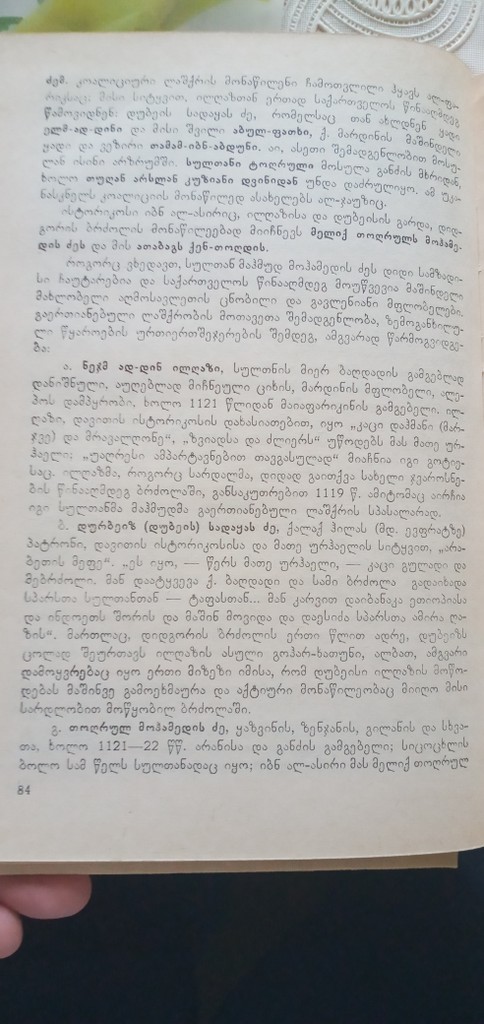 ძეშ. კოალიციური ლაშქრის მონაწილენი ჩამოთვლილი ჰყავს ალ-ფა-
რიკსაც: მისი სიტყვით, ილღაზთან ერთად საქართველოს წინააღმდეგ
წამოვიდნენ: დუბეის სადაყას ძე, რომელსაც თან ახლდნენ ყადი
ელმ-ად-დინი და მისი შვილი აბულ-ფათხი, ქ. მარდინის მაშინდელი
ყადი და ვეზირი თამამ-იბნ-აბდუნი. აი, ასეთი შემადგენლობით მოსუ-
ლან ისინი არზრუმში. სულთანი ტოღრული მოსულა განძის მხრიდან,
ხოლო თუღან არსლან კუზიანი დვინიდან უნდა დაძრულიყო. ამ უკა-
ნასკნელს კოალიციის მონაწილედ ასახელებს ალ-ჯაუზიც.
ისტორიკოსი იბნ ალ-ასირიც, ილღაზისა და დუბეისის გარდა, დიდ-
გორის ბრძოლის მონაწილეებად მიიჩნევს მელიქ თოღრულს მოჰამე-
დის ძეს და მის ათაბაგს ქენ-თოღდის.
როგორც ვხედავთ, სულთან მაჰმუდ მოჰამედის ძეს დიდი სამზადი-
სი ჩაუტარებია და საქართველოს წინააღმდეგ მოუწვევია მაშინდელი
მახლობელი აღმოსავლეთის ცნობილი და გავლენიანი მფლობელები.
გაერთიანებული ლაშქრობის მოთავეთა შემადგენლობა, ზემოგანხილუ-
ლი წყაროების ურთიერთშეჯერების შემდეგ, ამგვარად წარმოგვიდგე-
ბა:
ა. ნეჯმ ად-დინ ილღაზი, სულთნის მიერ ბაღდადის გამგებლად
დანიშნული, აუღებლად მიჩნეული ციხის, მარდინის მფლობელი, ალე-
პოს დამპყრობი, ხოლო 1121 წლიდან მაიაფარიკინის გამგებელი. ილ-
ღაზი, დავითის ისტორიკოსის დახასიათებით, იყო „კაცი დაჰმანი (მარ-
ჯვე) და მრავალღონე“, „ზვიადსა და ძლიერს“ უწოდებს მას მათე ურ-
ჰაელი; „უაღრესი ამპარტავნებით თავგასულად“ მიაჩნია იგი გოტიე-
საც. ილღაზმა, როგორც სარდალმა, დიდად გაითქვა სახელი ჯვაროსნე-
ბის წინააღმდეგ ბრძოლაში, განსაკუთრებით 1119 წ. ამიტომაც აირჩია
იგი სულთანმა მაჰმუდმა გაერთიანებული ლაშქრის სპასალარად.
ბ. დურბეიზ (დუბეის) სადაყას ძე, ქალაქ ჰილას (მდ. ევფრატზე)
პატრონი, დავითის ისტორიკოსისა და მათე ურჰაელის სიტყვით, „არა-
ბეთის მეფე“. „ეს იყო, — წერს მათე ურჰაელი, — კაცი გულადი და
მებრძოლი. მან დაატყვევა ქ. ბაღდადი და სამი ბრძოლა გადაიხადა
სპარსთა სულთანთან — ტაფასთან... მან კარვით დაიბანაკა ეთიოპიასა
და ინდოეთს შორის და მაშინ მოვიდა და დაესიძა სპარსთა ამირა ღა-
ზის“. მართლაც, დიდგორის ბრძოლის ერთი წლით ადრე, დუბეიზს
ცოლად შეურთავს ილღაზის ასული გოჰარ-ხათუნი, ალბათ, ამგვარი
დამოყვრებაც იყო ერთი მიზეზი იმისა, რომ დუბეისი ილღაზის მოწო-
დებას მაშინვე გამოეხმაურა და აქტიური მონაწილეობაც მიიღო მისი
სარდლობით მოწყობილ ბრძოლაში.
გ. თოღრულ მოჰამედის ძე, ყაზვინის, ზენჯანის, გილანის და სხვა-
თა, ხოლო 1121—22 წწ. არანისა და განძის გამგებელი; სიცოცხლის
ბოლო სამ წელს სულთანადაც იყო; იბნ ალ-ასირი მას მელიქ თოღრულ
84